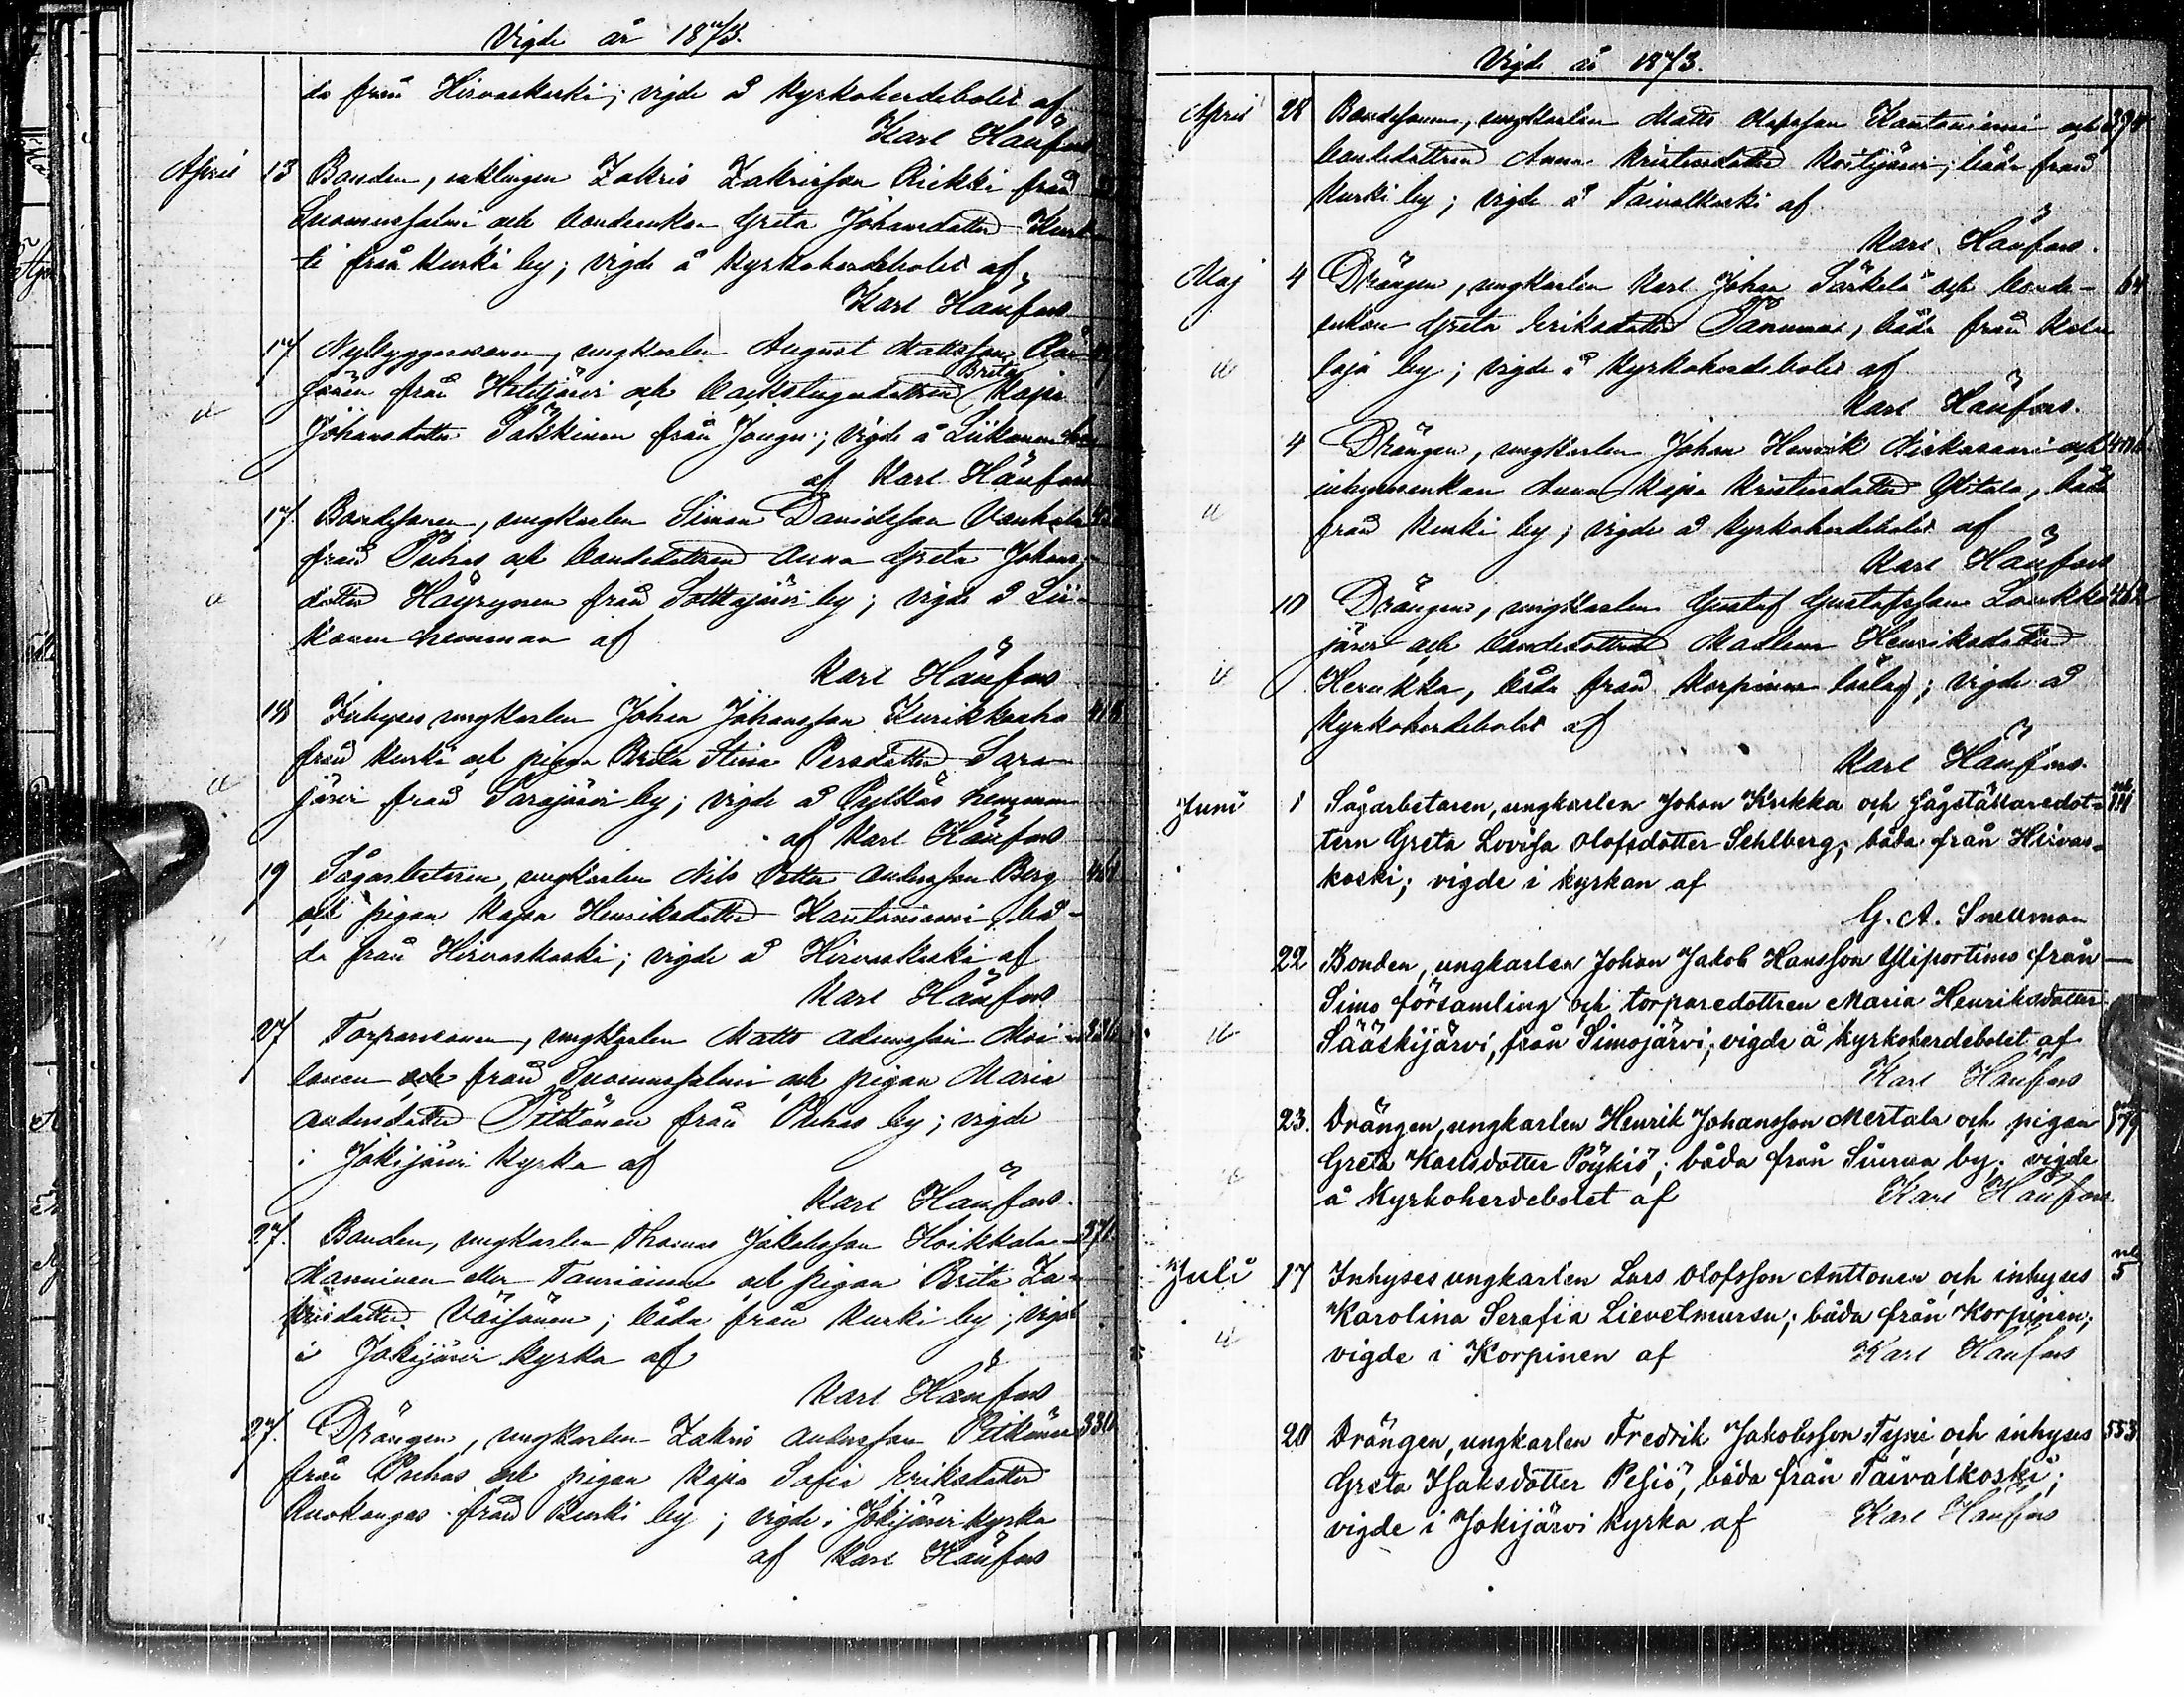 Vigde år 1873.
da från Hirvaskoski; vigde å Kyrkoherdebolet af
Karl Häufors
April 13 Bonden, enklingen Zakris Zakrisson Riekki från
Suomussalmi och bondeenkan Greta Johansdotter Kurt-
ti från Kurki by; vigde å Kyrkoherdebolet af
Karl Häufors
17 Nybyggaresonen, ungkarlen August Mattsson
Brita
från och backstugudottren Kajsa
Johansdotter från Jongu; vigde å Liikanen
af Karl Häufors
17. Bondesonen, ungkarlen Simon Davidsson
från Puhos och bondedottren Anna Greta Johans-
dotter Häyrynen från Sotkajärvi by; vigde å Lii-
kanen hemman af
Karl Häufors
18 Inhyses ungkarlen Johan Johansson Kurikkaaho 418
från Kurki och pigan Brita Stina Persdotter Sara-
järvi från Sarajärvi by; vigde å Pyhkös hemman
af Karl Häufors
19 Sågarbetaren, ungkarlen Nils Petter Andersson Berg
och pigan Kajsa Henriksdotter Kantoniemi, bå-
da från Hirvaskoski; vigde å Hirvaskoski af
Karl Häufors
27 Torparesonen, ungkarlen Matts Adamsson Moi-
lanen från Suomussalmi och pigan Maria
Andersdotter Pitkänen från Puhos by; vigde
i Jokijärvi Kyrka af
Karl Häufors.
27. Bonden, ungkarlen Thomas Jakobsson Hoikkala 371
Manninen eller Tauriainen och pigan Brita Za-
krisdotter Väisänen; båda från Kurki by; vigde
i Jokijärvi kyrka af
Karl Häufors
27. Drängen, ungkarlen Zakris Andersson Pitkänen 336
från Puhos och pigan Kajsa Sofia Eriksdotter
Ruokangas från Kurki by; vigde i Jokijärvi kyrka
af Karl Häufors
Vigde år 1873.
April 28 Bondesonen, ungkarlen Matts Kantoniemi och 398
bondedottren Anna Kristersdotter Kostijärvi; båda från
Kurki by; vigde å Taivalkoski af
Karl Häufors.
Maj 4 Drängen, ungkarlen Karl Johan Särkelä och bonde- 64
enkan Greta Eriksdotter båda från
by; vigde å Kyrkoherdebolet af
Karl Häufors.
4 Drängen, ungkarlen Johan Henrik Niskasaari och
inhysesenkan Anna Kajsa Kristersdotter Ylitalo, båda
från Kurki by; vigde å Kyrkoherdebolet af
Karl Häufors
10 Drängen, ungkarlen Gustaf Gustafsson Loukka- 462
järvi och bondedottren Madlena Henriksdotter
Herukka, båda från Korpinen boslag; vigde å
Kyrkoherdebolet af
Karl Häufors.
Juni 1 Sågarbetaren, ungkarlen Johan Kukka och sågställaredot-
tern Greta Lovisa Olofsdotter Sehlberg, båda från Hirvas-
koski; vigde i kyrkan af
G. A. Snellman
22 Bonden, ungkarlen Johan Jakob Hansson Yliportimo från —
Simo församling och torparedottren Maria Henriksdotter
Sääskijärvi, från Simojärvi; vigde å kyrkoherdebolet af
Karl Häufors
23. Drängen, ungkarlen Henrik Johansson Mertala och pigan 579
Greta Karlsdotter Pöykiö; båda från Siurua by. vigde
å Kyrkoherdebolet af Karl Häufors
Juli 17 Inhyses ungkarlen Lars Olofsson Anttonen och inhyses 5
Karolina Serafia Lievetmursu; båda från Korpinen;
vigde i Korpinen af Karl Häufors
20 Drängen, ungkarlen Fredrik Jakobsson Tyni och inhyses 553
Greta Isaksdotter Pesiö, båda från Taivalkoski;
vigde i Jokijärvi kyrka af Karl Häufors